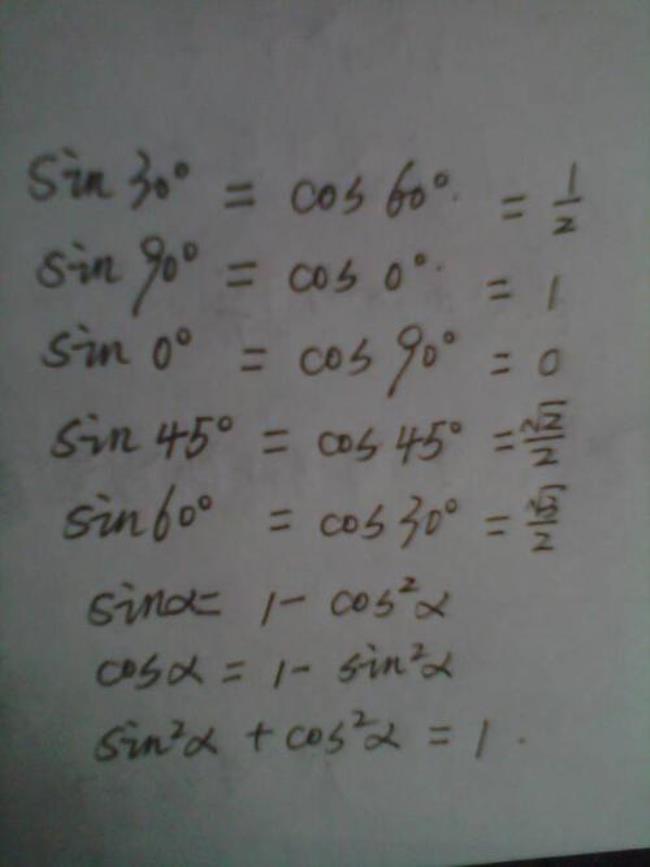 sin 30° = cos 60° = 1/2
sin 90° = cos 0° = 1
sin 0° = cos 90° = 0
sin 45° = cos 45° = √2/2
sin 60° = cos 30° = √3/2
sinα = 1 - cos²α
cosα = 1 - sin²α
sin²α + cos²α = 1.